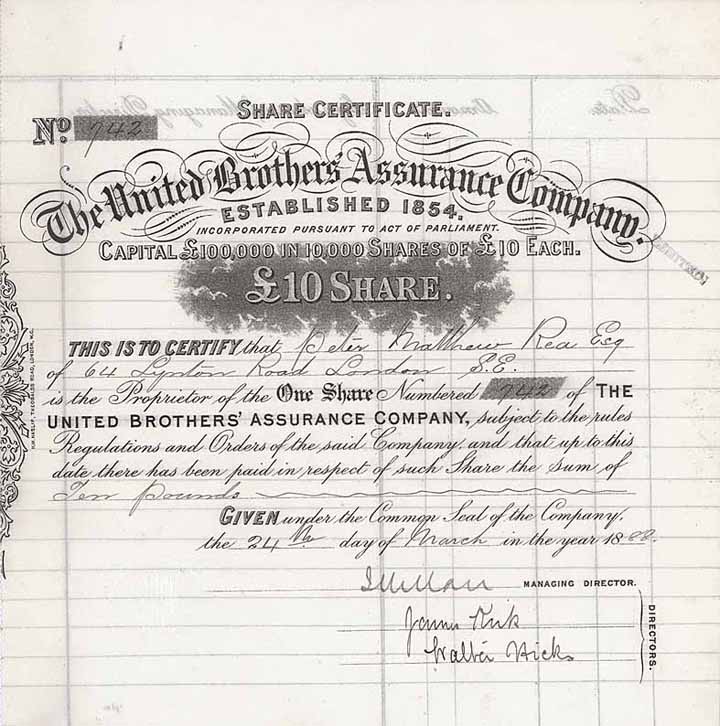 SHARE CERTIFICATE.
No. 742
The United Brothers' Assurance Company.
ESTABLISHED 1854.
INCORPORATED PURSUANT TO ACT OF PARLIAMENT.
CAPITAL £100,000 IN 10,000 SHARES OF £10 EACH.
£10 SHARE.
THIS IS TO CERTIFY that Peter Matthew Rea Esq
of 64 Lynton Road London S.E.
is the Proprietor of the One Share Numbered 742 of THE
UNITED BROTHERS' ASSURANCE COMPANY, subject to the rules
Regulations and Orders of the said Company, and that up to this
date there has been paid in respect of such Share the sum of
Ten pounds
GIVEN under the Common Seal of the Company,
the 24th day of March in the year 1888.
MANAGING DIRECTOR.
James Kirk
Walter Hicks
DIRECTORS.